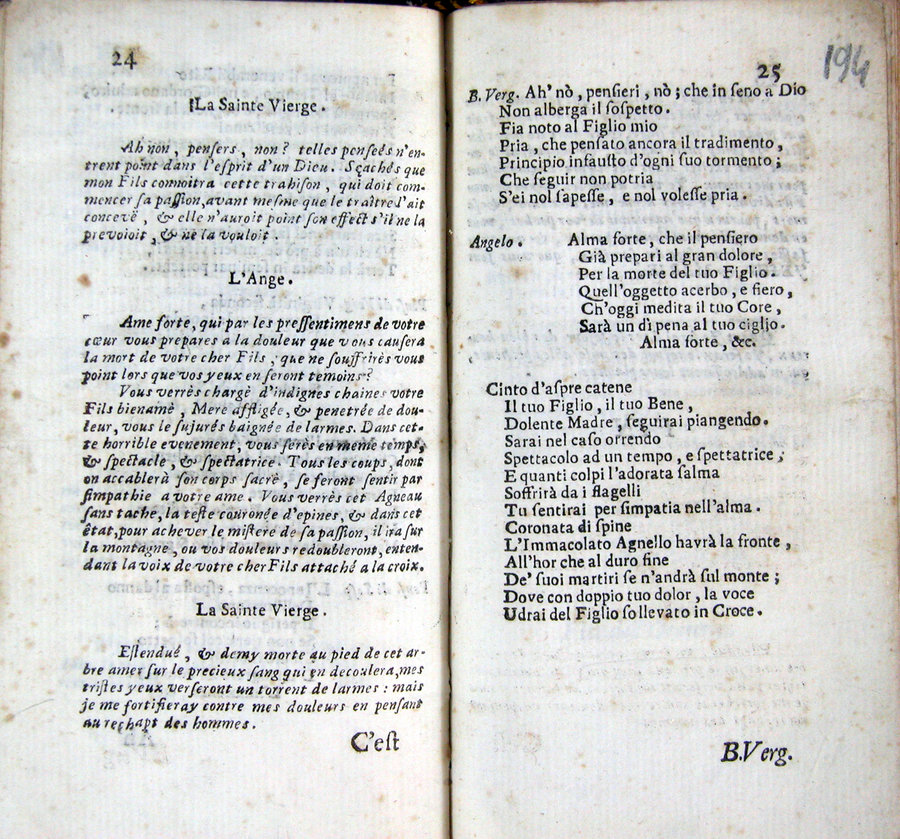 24
La Sainte Vierge.
Ah non, pensers, non? telles penseés n'en-
trent point dans l'esprit d'un Dieu. Sçachés que
mon Fils connoitra cette trahison, qui doit com-
mencer sa passion, avant mesme que le traître l'ait
concevë, & elle n'auroit point son effect s'il ne la
prevoioit, & ne la vouloit.
L'Ange.
Ame forte, qui par les pressentimens de votre
cœur vous prepares a la douleur que vous causera
la mort de votre cher Fils, que ne souffrirès vous
point lors que vos yeux en seront temoins?
Vous verrès chargè d'indignes chaines votre
Fils bienamè, Mere affligée, & penetrée de dou-
leur, vous le sujurés baignée de larmes. Dans cet-
te horrible evenement, vous serès en meme temps,
& spectacle, & spectatrice. Tous les coups, dont
on accablerà son corps sacrè, se feront sentir par
simpathie a votre ame. Vous verrès cet Agneau
sans tache, la teste couronée d'epines, & dans cet
êtat, pour achever le mistere de sa passion, il ira sur
la montagne, ou vos douleurs redoubleront, enten-
dant la voix de votre cher Fils attaché a la croix.
La Sainte Vierge.
Estenduë, & demy morte au pied de cet ar-
bre amer sur le precieux sang qui en decoulera, mes
tristes yeux verseront un torrent de larmes: mais
je me fortifieray contre mes douleurs en pensant
au rechapt des hommes.
C'est
25
194
B. Verg. Ah' nò, pensieri, nò; che in seno a Dio
Non alberga il sospetto.
Fia noto al Figlio mio
Pria, che pensato ancora il tradimento,
Principio infausto d'ogni suo tormento;
Che seguir non potria
S'ei nol sapesse, e nol volesse pria.
Angelo. Alma forte, che il pensiero
Già prepari al gran dolore,
Per la morte del tuo Figlio.
Quell'oggetto acerbo, e fiero,
Ch'oggi medita il tuo Core,
Sarà un dì pena al tuo ciglio.
Alma forte, &c.
Cinto d'aspre catene
Il tuo Figlio, il tuo Bene,
Dolente Madre, seguirai piangendo.
Sarai nel caso orrendo
Spettacolo ad un tempo, e spettatrice;
E quanti colpi l'adorata salma
Soffrirà da i flagelli
Tu sentirai per simpatia nell'alma.
Coronata di spine
L'Immacolato Agnello havrà la fronte,
All'hor che al duro fine
De' suoi martiri se n'andrà sul monte;
Dove con doppio tuo dolor, la voce
Udrai del Figlio sollevato in Croce.
B. Verg.